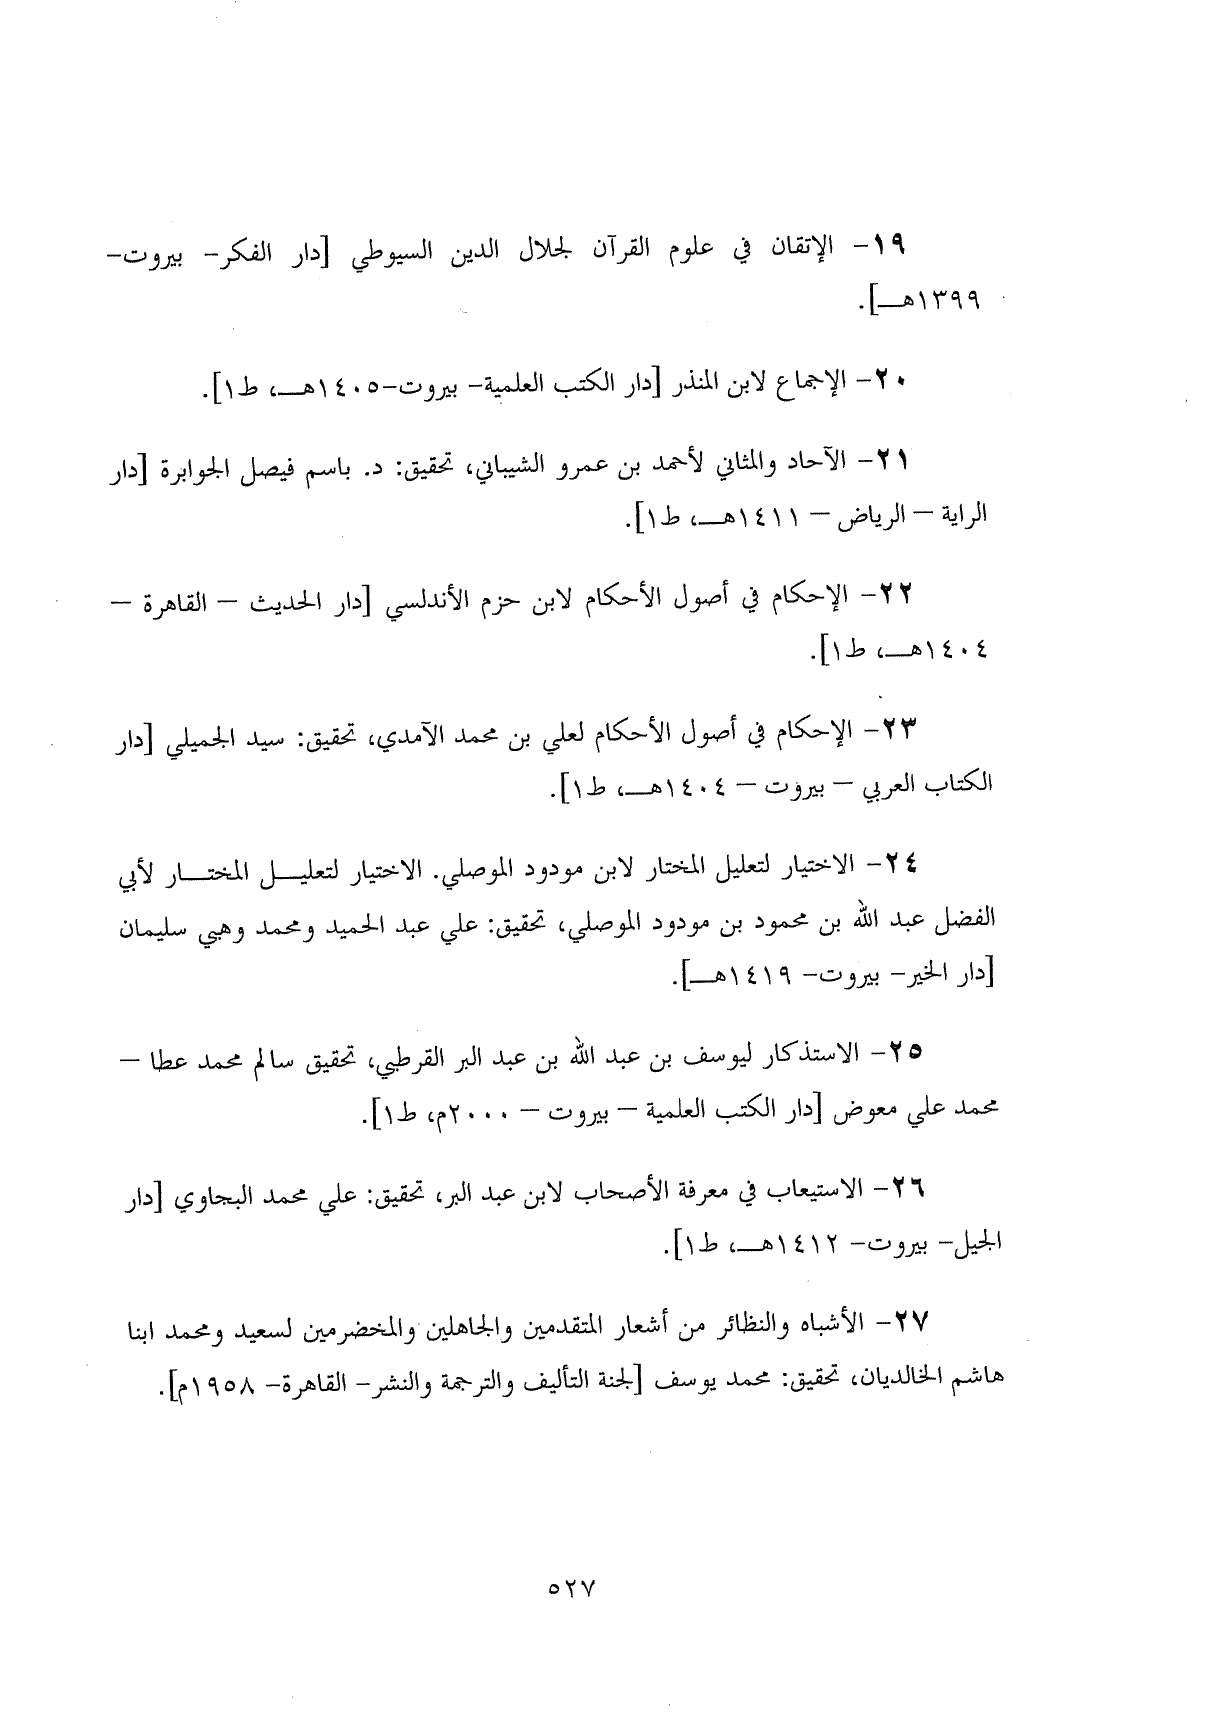 ١٩- الإتقان في علوم القرآن لجلال الدين السيوطي [دار الفكر- بيروت-
١٣٩٩هـ].
٢٠- الإجماع لابن المنذر [دار الكتب العلمية- بيروت-١٤٠٥هـ، ط١].
٢١- الآحاد والمثاني لأحمد بن عمرو الشيباني، تحقيق: د. باسم فيصل الجوابرة [دار
الراية – الرياض – ١٤١١هـ، ط١].
٢٢- الإحكام في أصول الأحكام لابن حزم الأندلسي [دار الحديث – القاهرة –
١٤٠٤هـ، ط١].
٢٣- الإحكام في أصول الأحكام لعلي بن محمد الآمدي، تحقيق: سيد الجميلي [دار
الكتاب العربي – بيروت – ١٤٠٤هـ، ط١].
٢٤- الاختيار لتعليل المختار لابن مودود الموصلي. الاختيار لتعليل المختار لأبي
الفضل عبد الله بن محمود بن مودود الموصلي، تحقيق: علي عبد الحميد ومحمد وهبي سليمان
[دار الخير- بيروت- ١٤١٩هـ].
٢٥- الاستذكار ليوسف بن عبد الله بن عبد البر القرطبي، تحقيق سالم محمد عطا –
محمد علي معوض [دار الكتب العلمية – بيروت – ٢٠٠٠م، ط١].
٢٦- الاستيعاب في معرفة الأصحاب لابن عبد البر، تحقيق: علي محمد البجاوي [دار
الجيل- بيروت- ١٤١٢هـ، ط١].
٢٧- الأشباه والنظائر من أشعار المتقدمين والجاهلين والمخضرمين لسعيد ومحمد ابنا
هاشم الخالديان، تحقيق: محمد يوسف [لجنة التأليف والترجمة والنشر- القاهرة- ١٩٥٨م].
٥٢٧